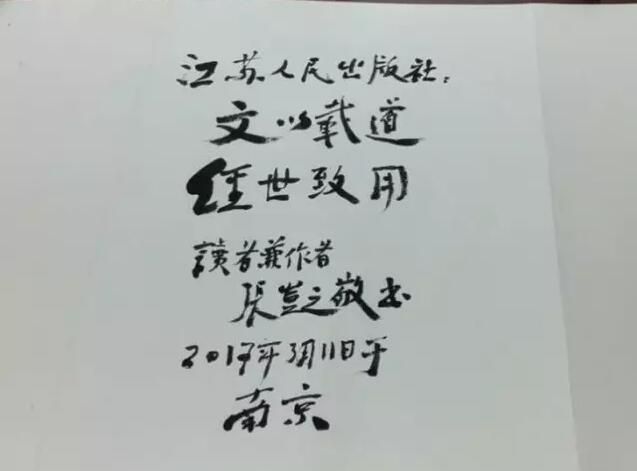 江苏人民出版社：
文以载道
经世致用
读者兼作者
张岂之敬书
2017年3月11日于
南京